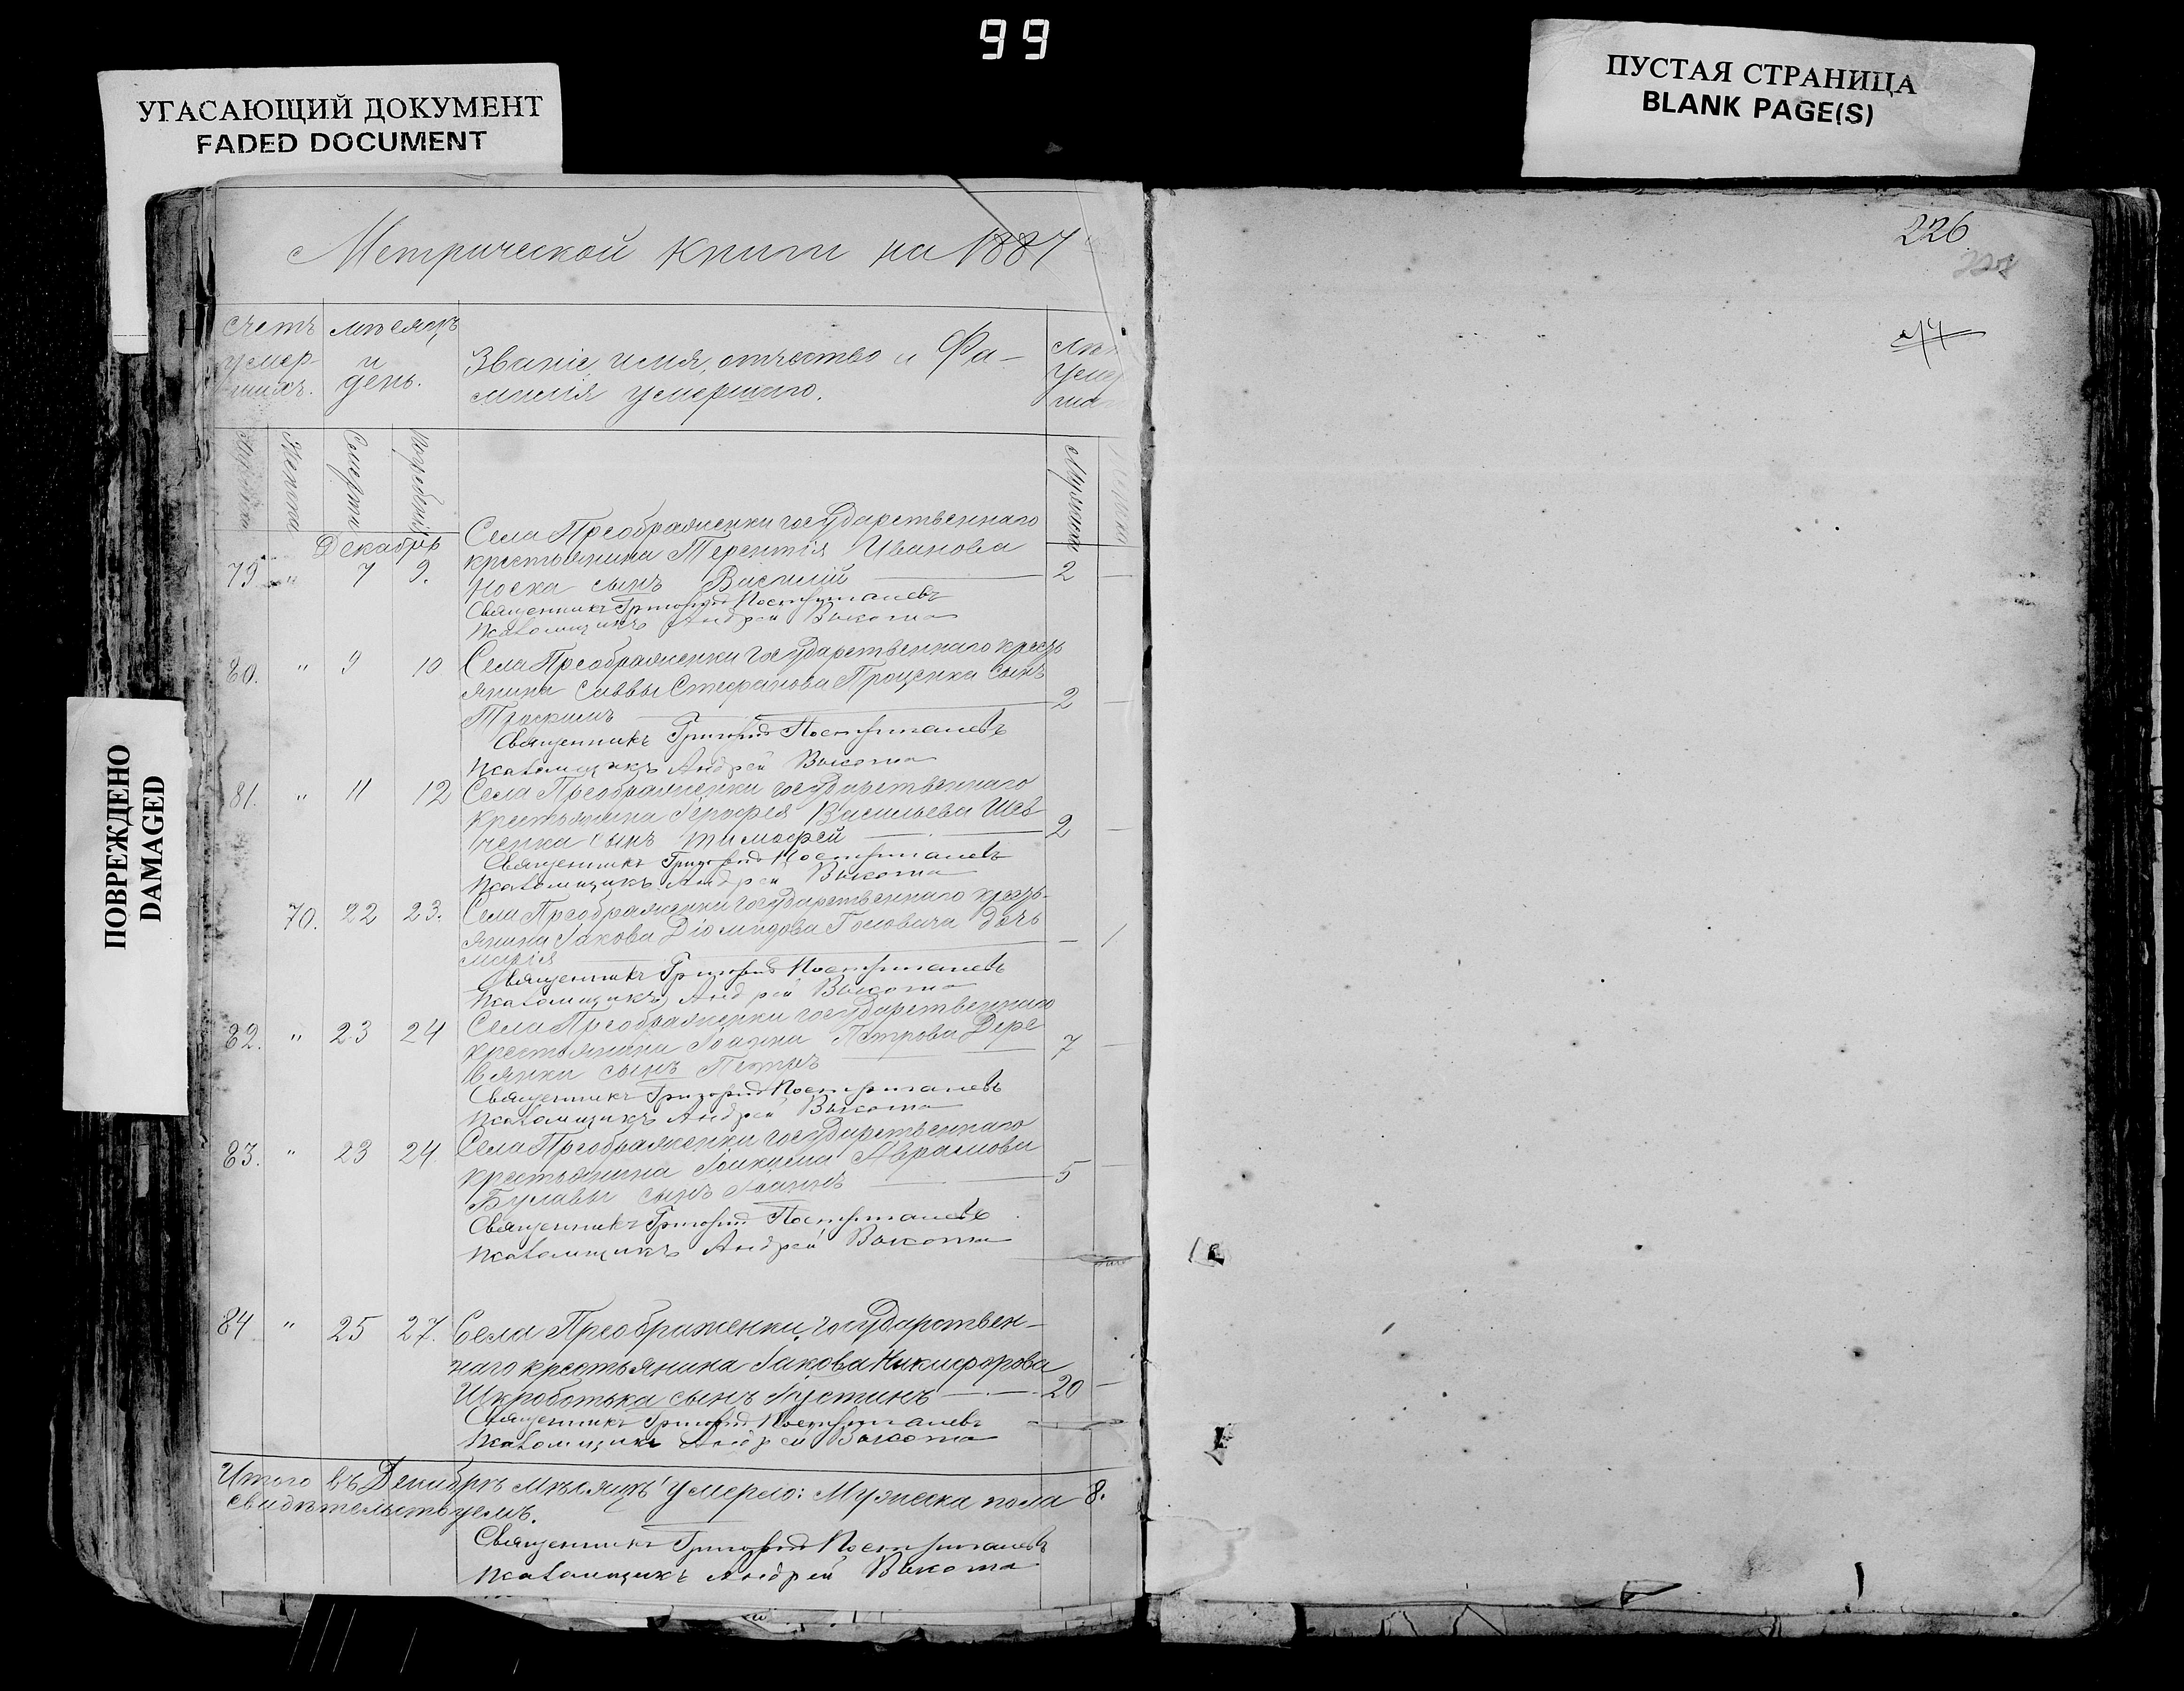 99
УГАСАЮЩИЙ ДОКУМЕНТ
FADED DOCUMENT
ПУСТАЯ СТРАНИЦА
BLANK PAGE(S)
ПОВРЕЖДЕНО
DAMAGED
226
Метрической книги на 1887
Счетъ умер- шихъ.
мѣсяцъ и день.
Званіе, имя, отчество и Фа-
милія умершаго.
Лѣ
Уме
ша
Женска
Смерти
Погребенія
Мужска
Декабрь
Села Преображенки государственнаго
79. " 7 9. крестьянина Терентія Иванова
Носка сынъ Василій 2 —
Священникъ Григорій
Псаломщикъ Андрей Высота
80. " 9 10 Села Преображенки государственнаго кресть
янина Саввы Стефанова Проценка сынъ
2 —
Священникъ Григорій
Псаломщикъ Андрей Высота
81. " 11 12 Села Преображенки государственнаго
крестьянина Васильева Шев
ченка сынъ Тимофей 2 —
Священникъ Григорій
Псаломщикъ Андрей Высота
70. 22 23. Села Преображенки государственнаго кресть-
янина Іакова Діомидова Головача дочь
Марія — 1
Священникъ Григорій
Псаломщикъ Андрей Высота
82. " 23 24 Села Преображенки государственнаго
крестьянина Іоанна Петрова Дере
вянки сынъ Петръ 7 —
Священникъ Григорій
Псаломщикъ Андрей Высота
83. " 23 24 Села Преображенки государственнаго
крестьянина Іоакима Аврамова
Булавы сынъ Іоаннъ 5 —
Священникъ Григорій
Псаломщикъ Андрей Высота
84 " 25 27. Села Преображенки государствен-
наго крестьянина Іакова Никифорова
Шкроботька сынъ Іустинъ 20 —
Священникъ Григорій
Псаломщикъ Андрей Высота
Итого въ Декабрѣ мѣсяцѣ умерло: Мужеска пола 8.
свидѣтельствуемъ.
Священникъ Григорій
Псаломщикъ Андрей Высота